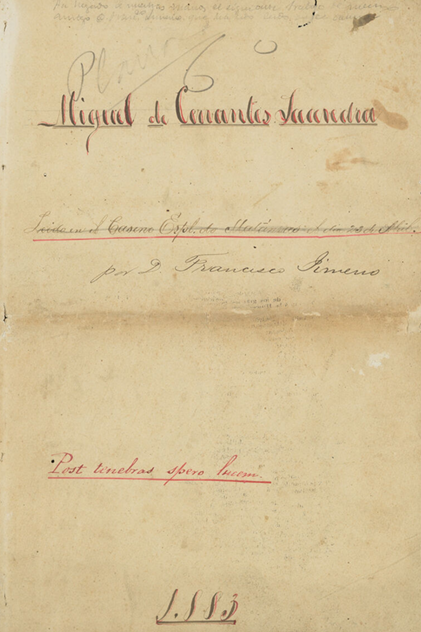 Plano 6
Miguel de Cervantes Saavedra
Leido en el Casino Espl. de Matanzas el dia 23 de Abril.
por D. Francisco Jimeno
Post tenebras spero lucem.
1.883